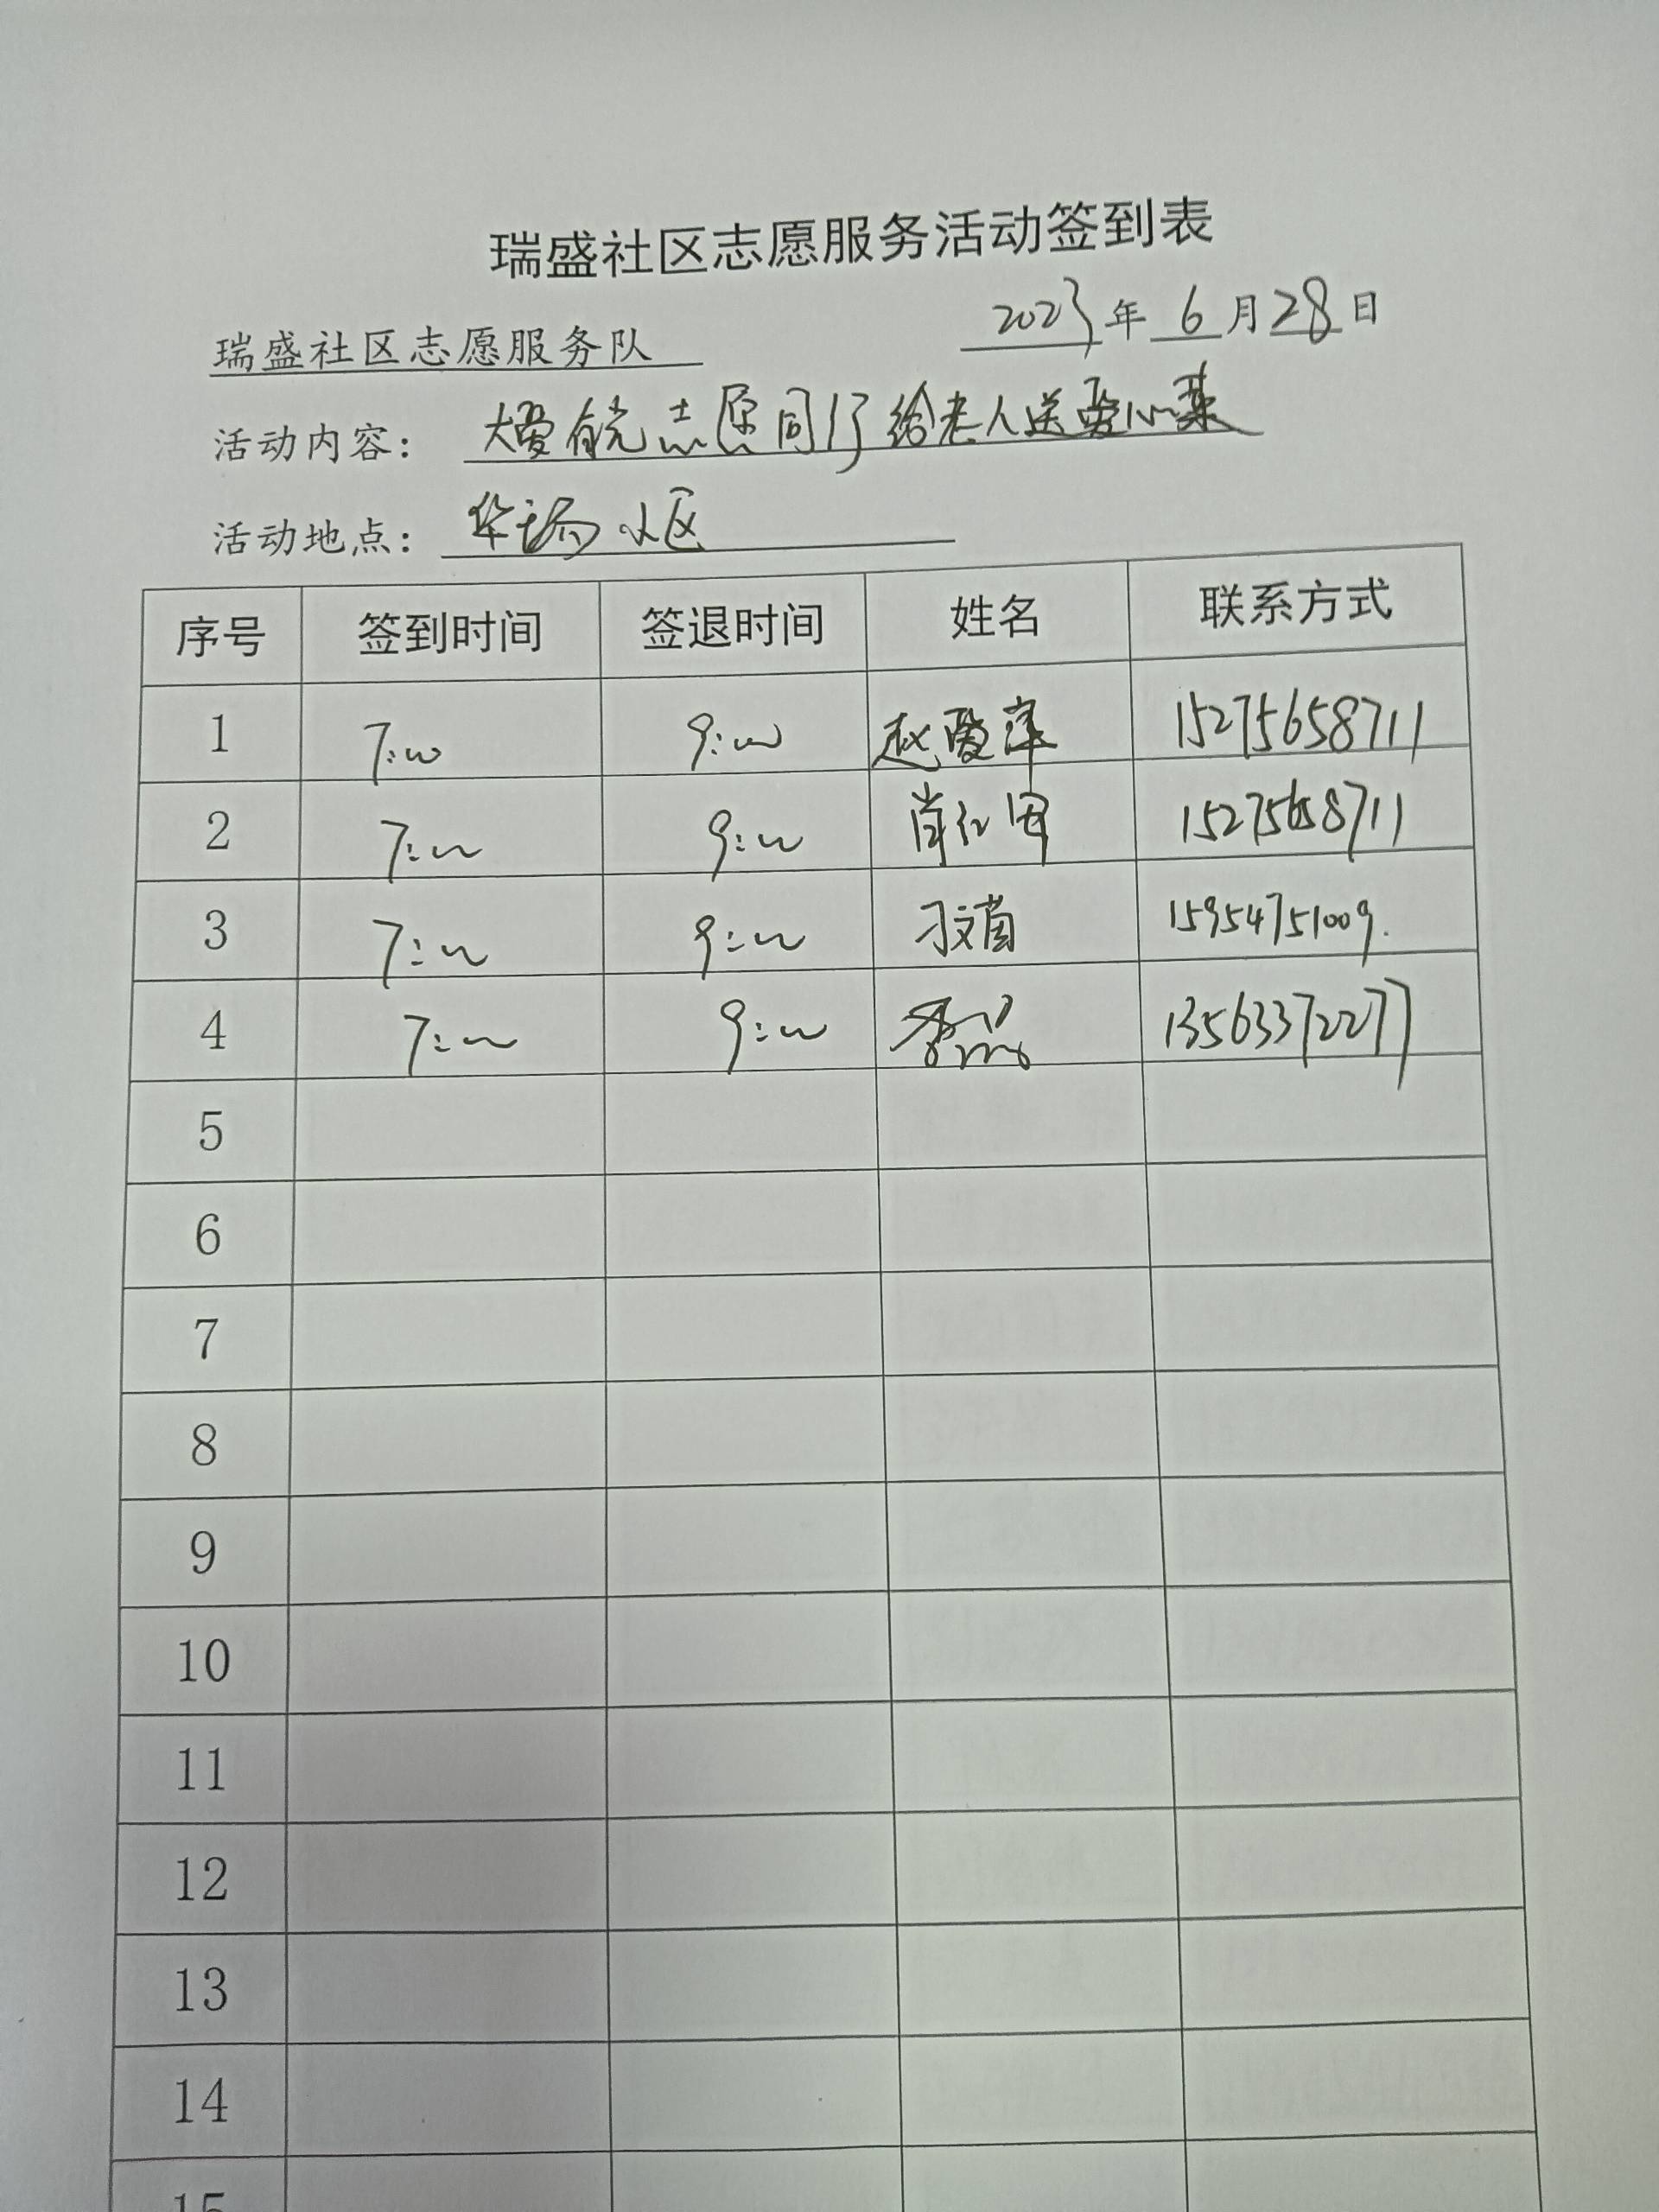 瑞盛社区志愿服务活动签到表
瑞盛社区志愿服务队 2023年 6 月 28 日
活动内容: 大爱有光志愿同行给老人送爱心菜
活动地点: 华 小区
序号 签到时间 签退时间 姓名 联系方式
1 7:00 9:00 赵爱萍 15275658711
2 7:00 9:00 肖红军 15275658711
3 7:00 9:00 刁文茵 15954751009.
4 7:00 9:00 李 13563372277
5
6
7
8
9
10
11
12
13
14
15